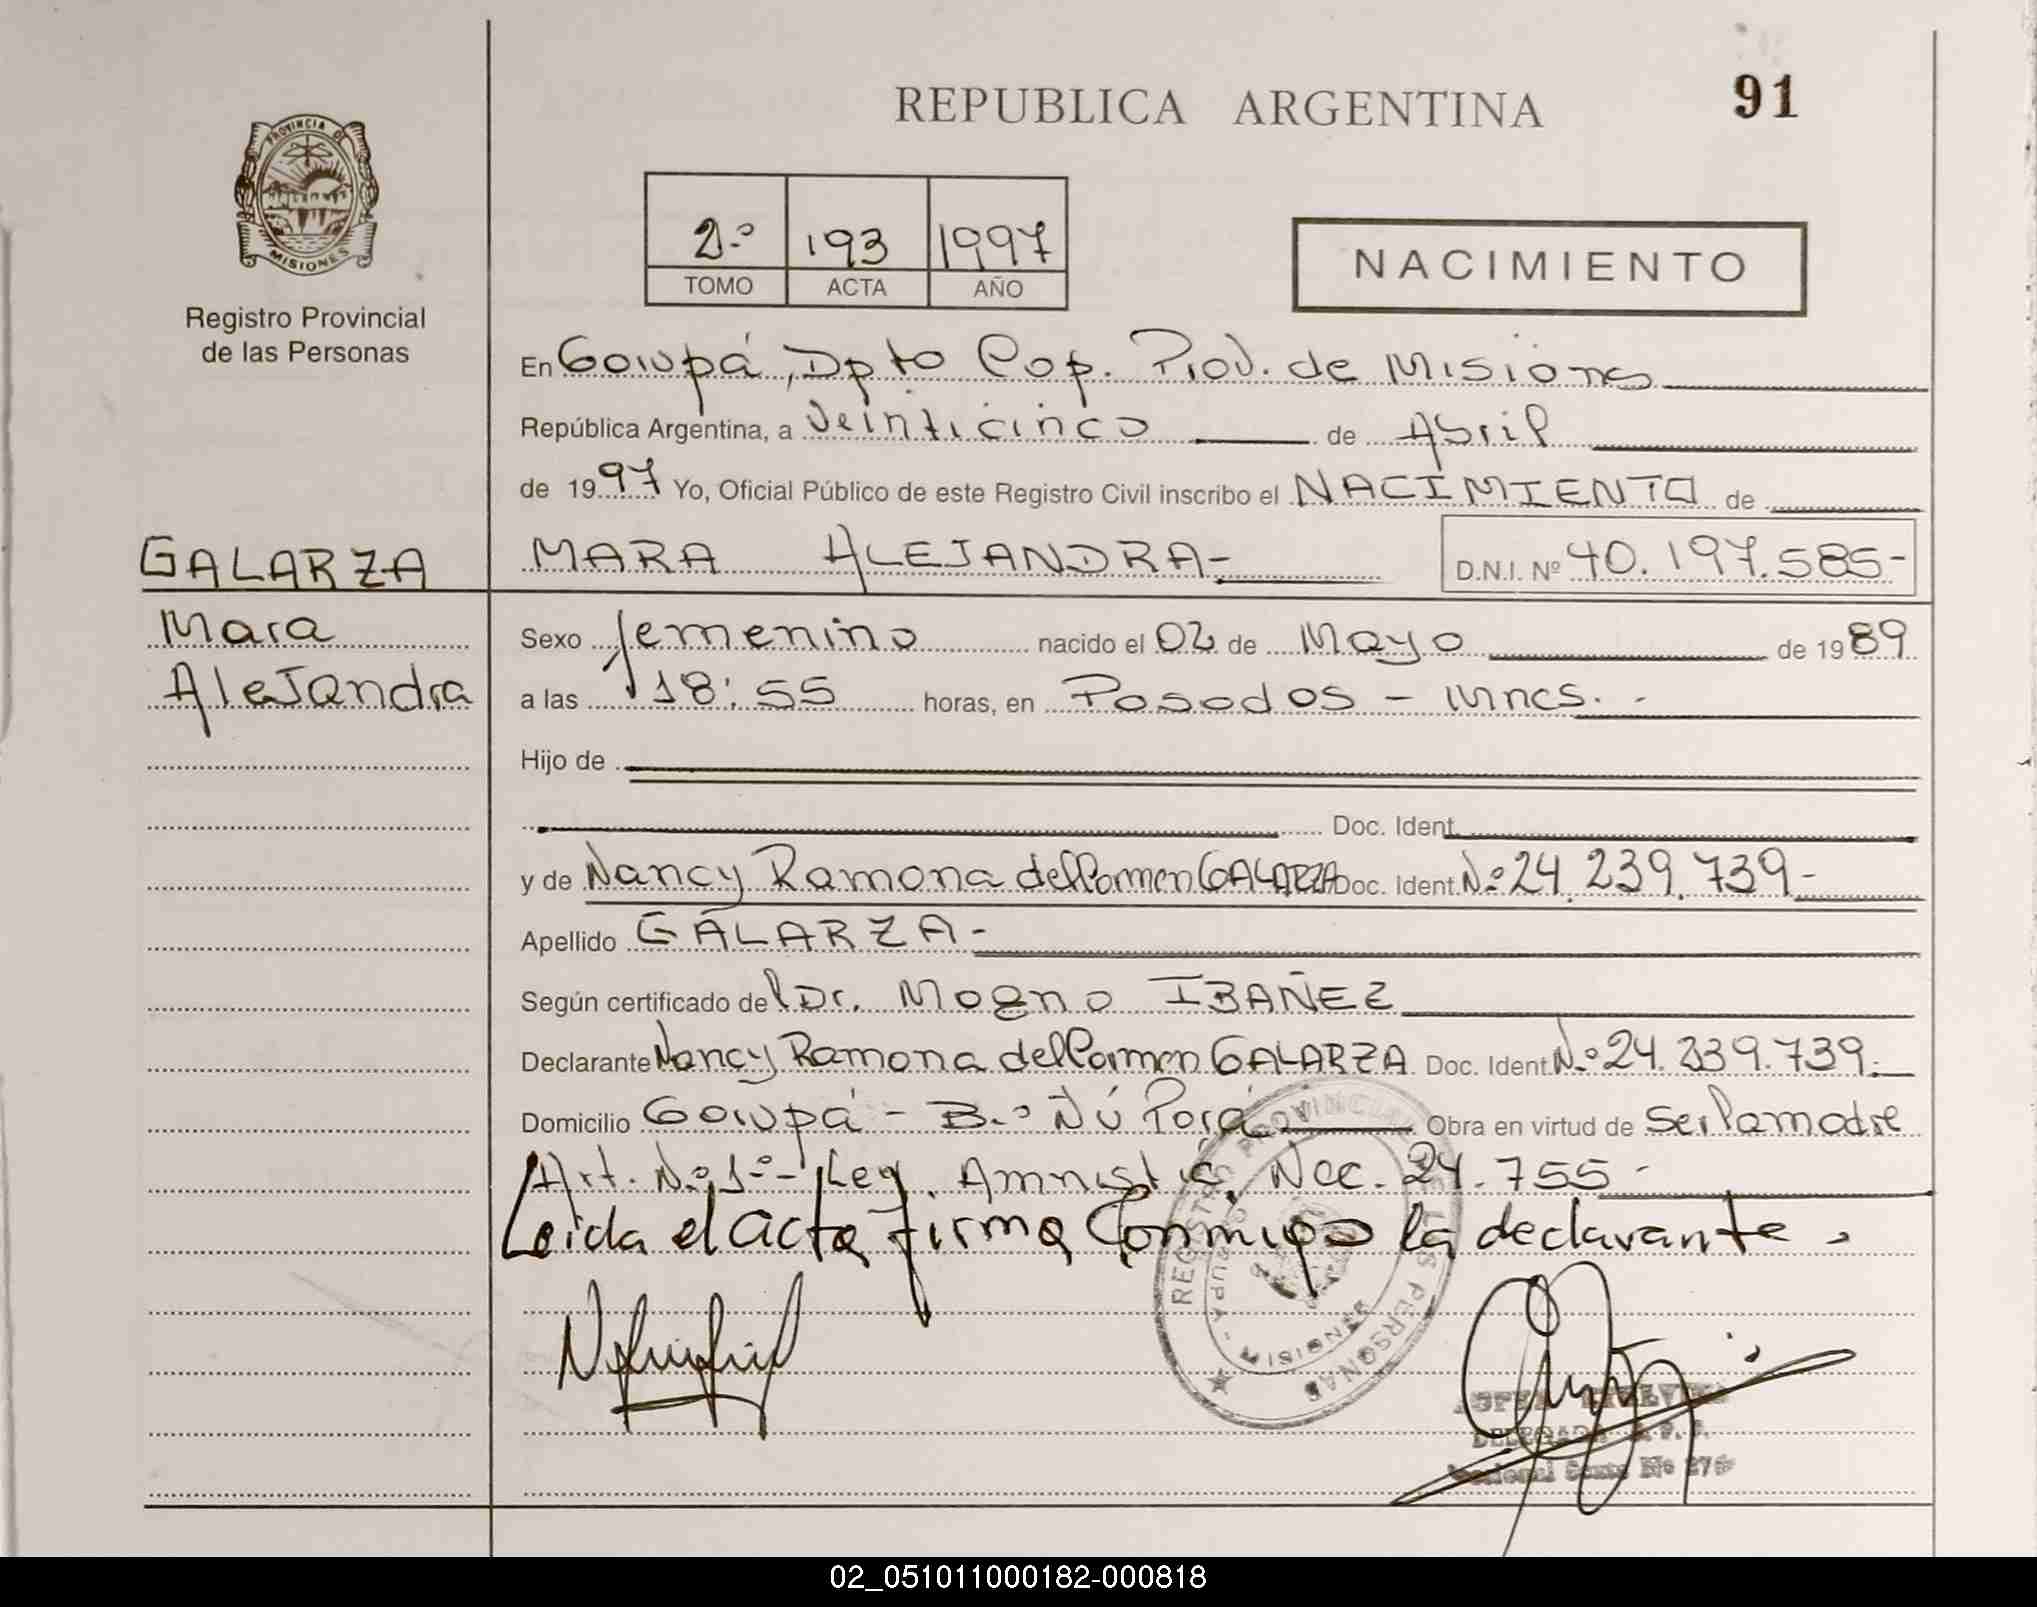 REPUBLICA ARGENTINA
91
PROVINCIA DE
MISIONES
Registro Provincial
de las Personas
2.º 193 1997
TOMO ACTA AÑO
NACIMIENTO
En Garupá, Dpto Cap. Prov. de Misiones
República Argentina, a Veinticinco de Abril
de 1997 Yo, Oficial Público de este Registro Civil inscribo el NACIMIENTO de
GALARZA MARA ALEJANDRA- D.N.I. Nº 40.197.585-
Mara
AleJandra
Sexo femenino nacido el 02 de Mayo de 1989
a las 18:55 horas, en Posadas - Mnes. -
Hijo de
Doc. Ident.
y de Nancy Ramona del Carmen GALARZA Doc. Ident. N.º 24.239.739-
Apellido GALARZA-
Según certificado del Dr. Magno IBAÑEZ
Declarante Nancy Ramona del Carmen GALARZA Doc. Ident. N.º 24.239.739.-
Domicilio Garupá - B.º Ñú Porá Obra en virtud de Ser la madre
Art. N.º 1º- Ley. Amnistía. Nac. 24.755-
Leida el acta firma Conmigo la declarante.
REGISTRO PROVINCIAL DE LAS PERSONAS
GARUPA - MISIONES
DELEGADA R.P.P.
02_051011000182-000818